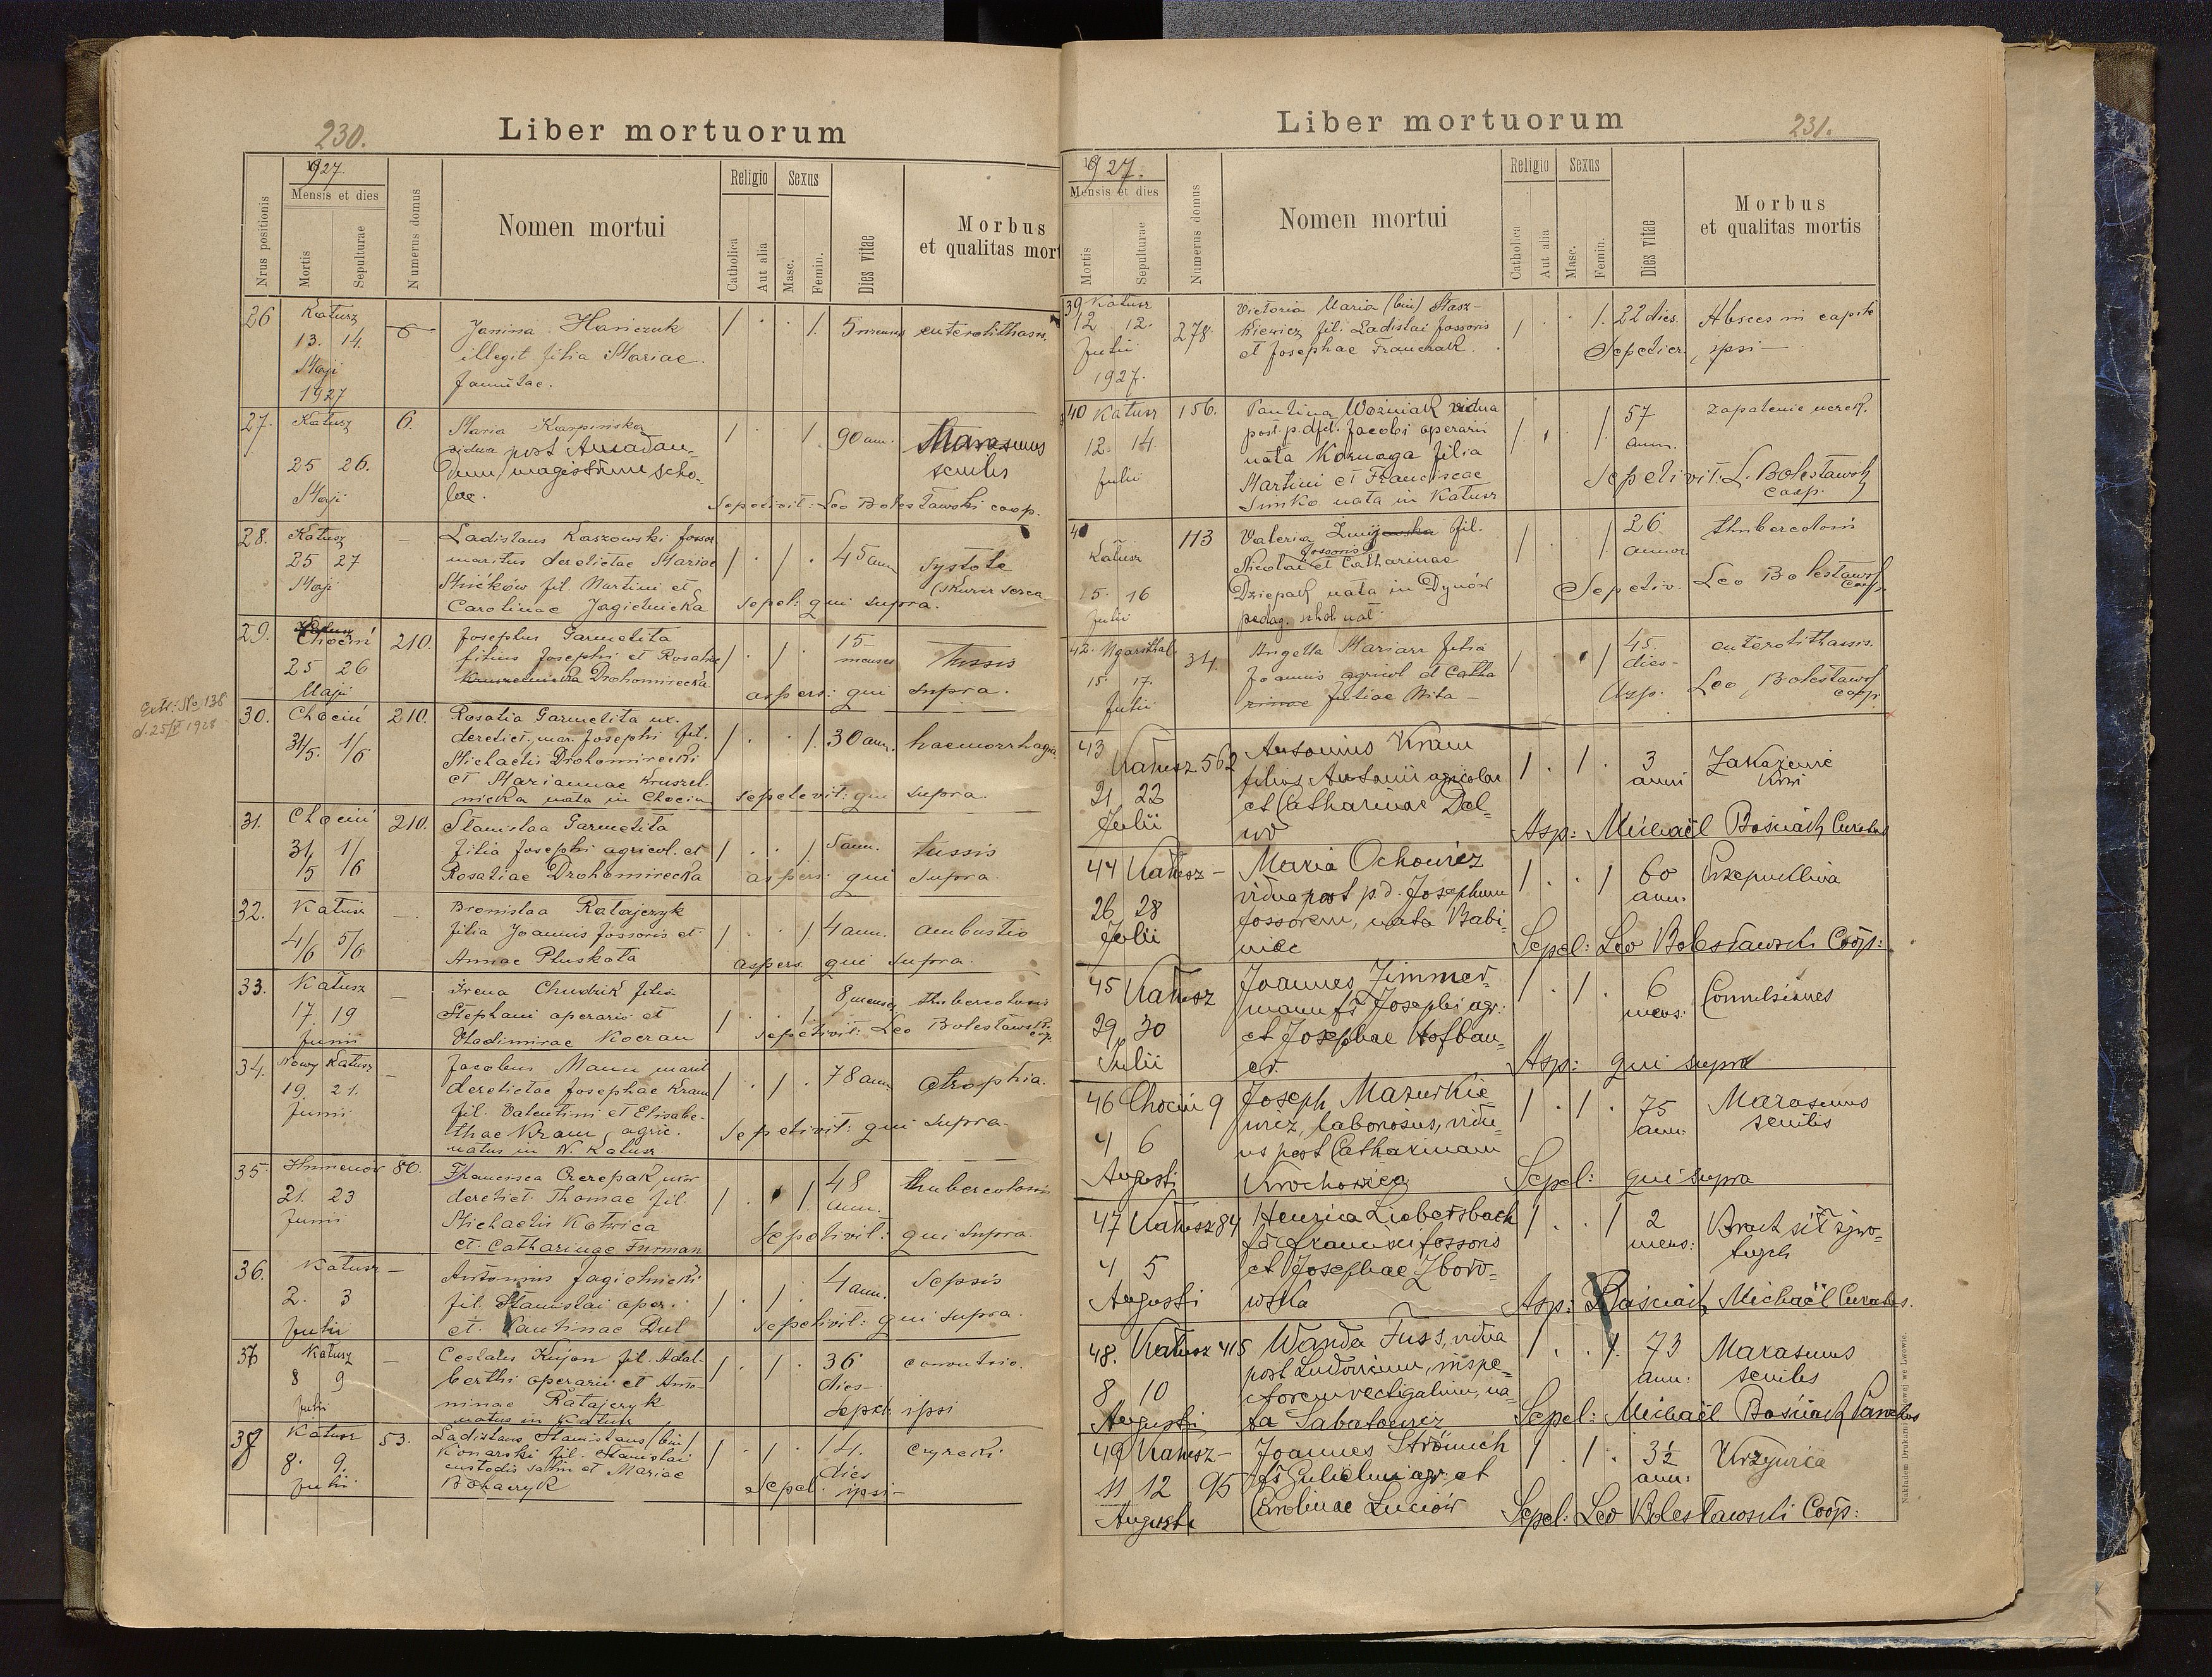 230.
Liber mortuorum
1927.
Nrus positionis
Mensis et dies
Mortis
Sepulturae
Numerus domus
Nomen mortui
Religio
Catholica
Aut alia
Sexus
Masc.
Femin.
Dies vitae
Morbus
et qualitas mort
26 Kałusz
13. 14.
Maji
1927
6
Janina Hanczuk
illegit filia Mariae
famulae.
1 . . 1. 5 menses enterolithasis.
27. Kałusz 6.
25 26.
Maji
Maria Karpińska
vidua post Amadau-
dum magistrum scho-
lae.
1 . . 1. 90 ann. Marasmus
senilis
Sepelivit: Leo Bolesławski coop.
28. Kałusz —
25 27
Maji
Ladislaus Kaszowski fossor
maritus derelictae Mariae
Mićków fil. Martini et
Carolinae Jagielnicka
1 . 1 . 45 ann. Systole
(skurcz serca
sepel: qui supra.
29. Chocin 210.
25 26
Maji
Josephus Garmelita
filius Josephi et Rosaliae
Drohomirecka
1 . 1 . 15
menses tussis
aspers: qui supra.
Extr: No 138
d. 25/V 1928
30. Chocin 210.
31/5. 1/6
Rosalia Garmelita ux.
derelict. mar. Josephi fil.
Michaelis Drohomirecki
et Mariannae Kruszel-
nicka nata in Chocin
1 . . 1. 30 ann. haemorrhagia
sepelevit: qui supra.
31. Chocin 210.
31/5 1/6
Stanislaa Garmelita
filia Josephi agricol. et
Rosaliae Drohomirecka
1 . . 1 5 ann. tussis
aspers: qui supra.
32. Kałusz —
4/6 5/6
Bronislaa Ratajczyk
filia Joannis fossoris et
Annae Pluskota
1 . . 1 4 ann. ambustio
aspers. qui supra.
33. Kałusz —
17. 19
Junii
Irena Chudzik filia
Stephani operarii et
Vladimirae Koczan
1 . . 1. 8 menses thubercolosis
sepelivit: Leo Bolesławski
coop.
34. Nowy Kałusz —
19. 21.
Junii
Jacobus Mann marit
derelictae Josephae Kram
fil. Valentini et Elisabe-
thae Kram, agric.
natus in N. Kałusz
1 . 1 . 78 ann. atrophia.
Sepelivit: qui supra.
35. Humenów 80.
21. 23
Junii
Francisca Czerepak uxor
derelict. Thomae fil.
Michaelis Kotwica
et. Catharinae Furman
1 . . 1 48
ann. thubercolosis
Sepelivit: qui supra.
36. Kałusz —
2. 3
Julii
Antonius Jagielnicki
fil. Stanislai oper.
et. Paulinae Dul
1 . 1 . 4 ann. Sepsis
sepelivit: qui supra.
37 Kałusz —
8 9
Julii
Ceslaus Kujon fil. Adal-
berthi operarii et Anto-
ninae Ratajczyk
natus in Kałusz
1 . 1 . 36
dies
sepel. ipsi
38 Kałusz 53.
8. 9.
Julii
Ladislaus Stanislaus (bin)
Konarski fil. Stanislai
custodis salin et Mariae
Bohaczyk
1 . 1 . 14.
dies czyraki
Sepel. ipsi —
Liber mortuorum
231.
1927.
Mensis et dies
Mortis
Sepulturae
Numerus domus
Nomen mortui
Religio
Catholica
Aut alia
Sexus
Masc.
Femin.
Dies vitae
Morbus
et qualitas mortis
39 Kałusz
12 12. 278.
Julii
1927.
Victoria Maria (bin) Stasz-
kiewicz fil. Ladislai fossoris
et Josephae Franczak.
1 . . 1. 22 dies. Absces in capite
Sepelier. ipsi —
40 Kałusz 156.
12. 14.
Julii
Paulina Woźniak vidua
post. p. dfct. Jacobi operarii
nata Kornaga filia
Martini et Franciscae
Simko nata in Kałusz
1 . . 1. 57
ann. zapalenie nerek.
Sepelivit: L. Bolesławski
coop.
41 Kałusz 113
15. 16
Julii
Valeria fil.
fossoris
Nicolai et Catharinae
Dziepak nata in Dynów
pedag. schol. nat.
1 . . 1 26.
annor thubercolosis
Sepeliv. Leo Bolesławski
coop.
42. Ugarsthal 34.
15. 17.
Julii
Angella Mariarr filia
Joannis agricol et Catha
rinae Juliae Bita —
1 . . 1 45.
dies enterolithasis.
Asp. Leo Bolesławski
coop.
43 Kałusz 562
21 22
Julii
Antonius Kram
filius Antonii agricolae
et Catharinae Del-
wo
1 . 1 . 3
anni Zakażenie
krwi
Asp: Michaël Bośniak Curatus
44 Kałusz —
26 28
Julii
Maria Ochowicz
vidua post p. d. Josephum
fossorem, nata Babi-
niec
1 . . 1 60
ann. Przepuklina
Sepel: Leo Bolesławski Coop:
45 Kałusz
29 30
Julii
Joannes Zimmer-
mann fs Josephi agr:
et Josephae Hofbau-
er.
1 . 1 . 6
mens: Convulsiones
Asp: qui supra
46 Chocin 9
4 6
Augusti
Joseph Mazurkie-
wicz, laboriosus, vidu-
us post Catharinam
Krochowicz
1 . 1 . 75
ann: Marasmus
senilis
Sepel: qui supra
47 Kałusz 84
4 5
Augusti
Henrica Liebersbach
fa Francisci fossoris
et Josephae Zboro-
wska
1 . . 1 2
mens: Brak sił żywo-
tnych
Asp: Bośniak Michaël Curatus.
48. Kałusz 415
8 10
Augusti
Wanda Fuss, vidua
post Ludovicum, inspe-
ctorem vectigalium, na-
ta Sabatowicz
1 . . 1. 73
ann: Marasmus
senilis
Sepel: Michaël Bośniak Parochus
49 Kałusz — 95
11 12
Augusti
Joannes Strömich
fs Gulielmi agr: et
Carolinae Luciów
1 . 1 . 3½
ann:
Sepel: Leo Bolesławski Coop:
Nakładem Drukarni Ludowej we Lwowie.